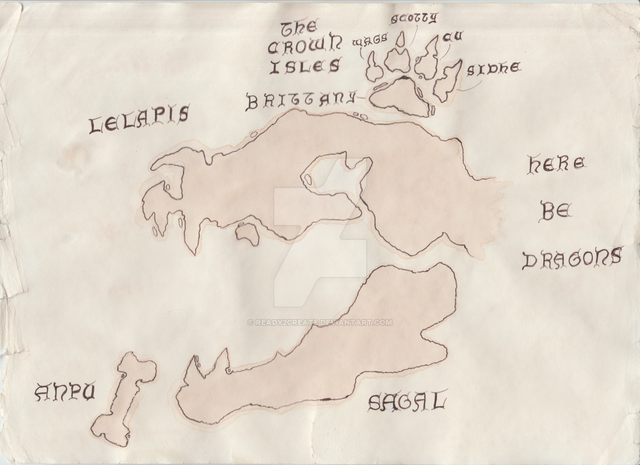 THE
CROWN
ISLES
WAGS
SCOTTY
CU
SIDHE
BRITTANY
LELAPIS
HERE
BE
DRAGONS
ANPU
SAGAL
© READ2CREATE.DEVIANTART.COM